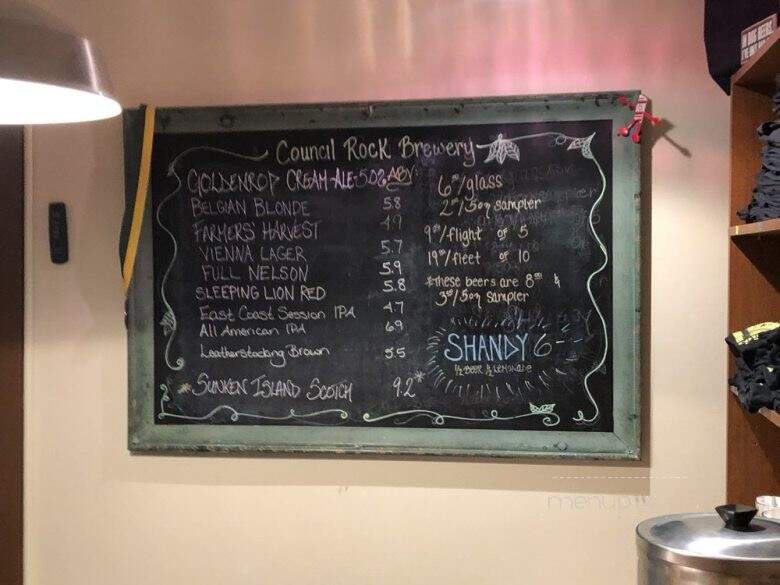 Council Rock Brewery
GOLDENROD CREAM ALE 5.0% ABV
BELGIAN BLONDE 5.8
FARMERS' HARVEST 4.9
VIENNA LAGER 5.7
FULL NELSON 5.9
SLEEPING LION RED 5.8
East Coast Session IPA 4.7
All American IPA 6.9
Leatherstocking Brown 5.5
*SUNKEN ISLAND SCOTCH 9.2*
6⁰⁰/glass
/5oz sampler
/flight of 5
/fleet of 10
*these beers are 8⁰⁰ &
/5oz sampler
SHANDY 6-
½ BEER ½ LEMONADE
menupix